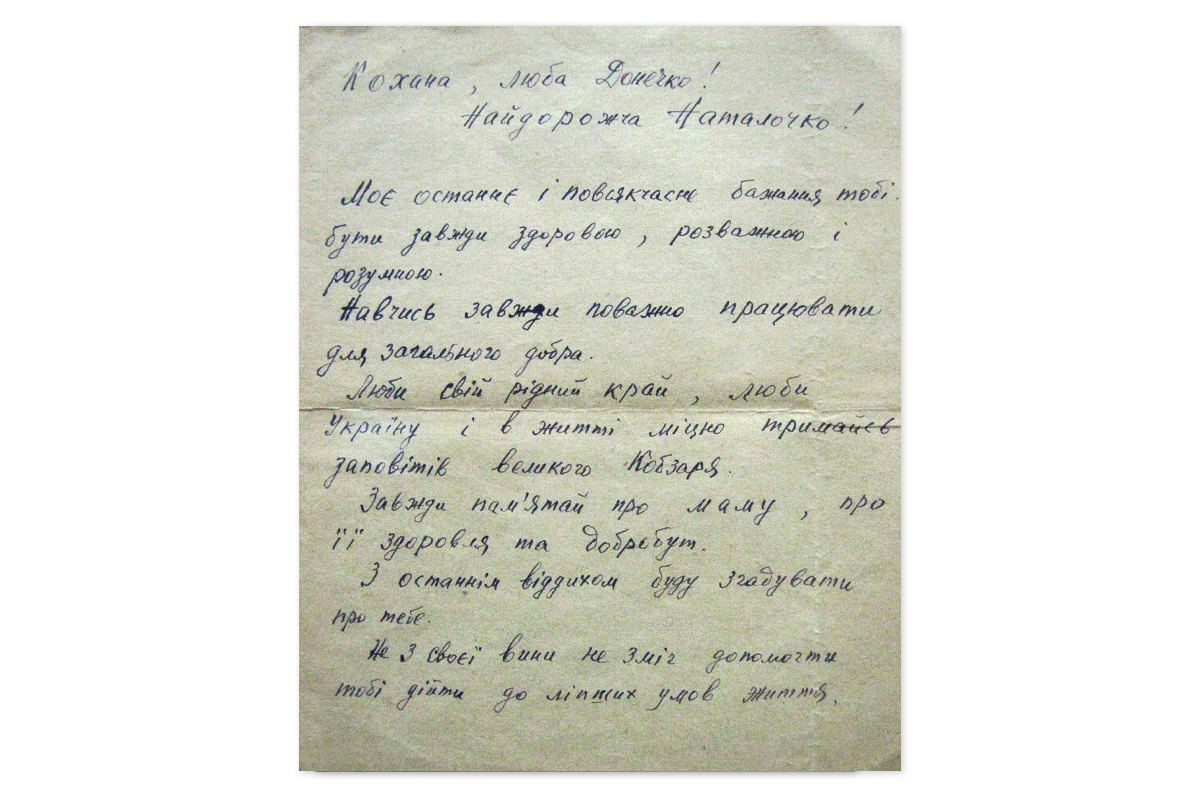 Кохана, люба Донечко!
Найдорожча Наталочко!
Моє останнє і повсякчасне бажання тобі.
бути завжди здоровою, розважною і
розумною.
Навчись завжди поважно працювати
для загального добра.
Люби свій рідний край, люби
Україну і в житті міцно тримайсь
заповітів великого Кобзаря.
Завжди пам'ятай про маму, про
її здоровля та добробут.
З останнім віддихом буду згадувати
про тебе.
Не з своєї вини не зміг допомогти
тобі дійти до ліпших умов життя.